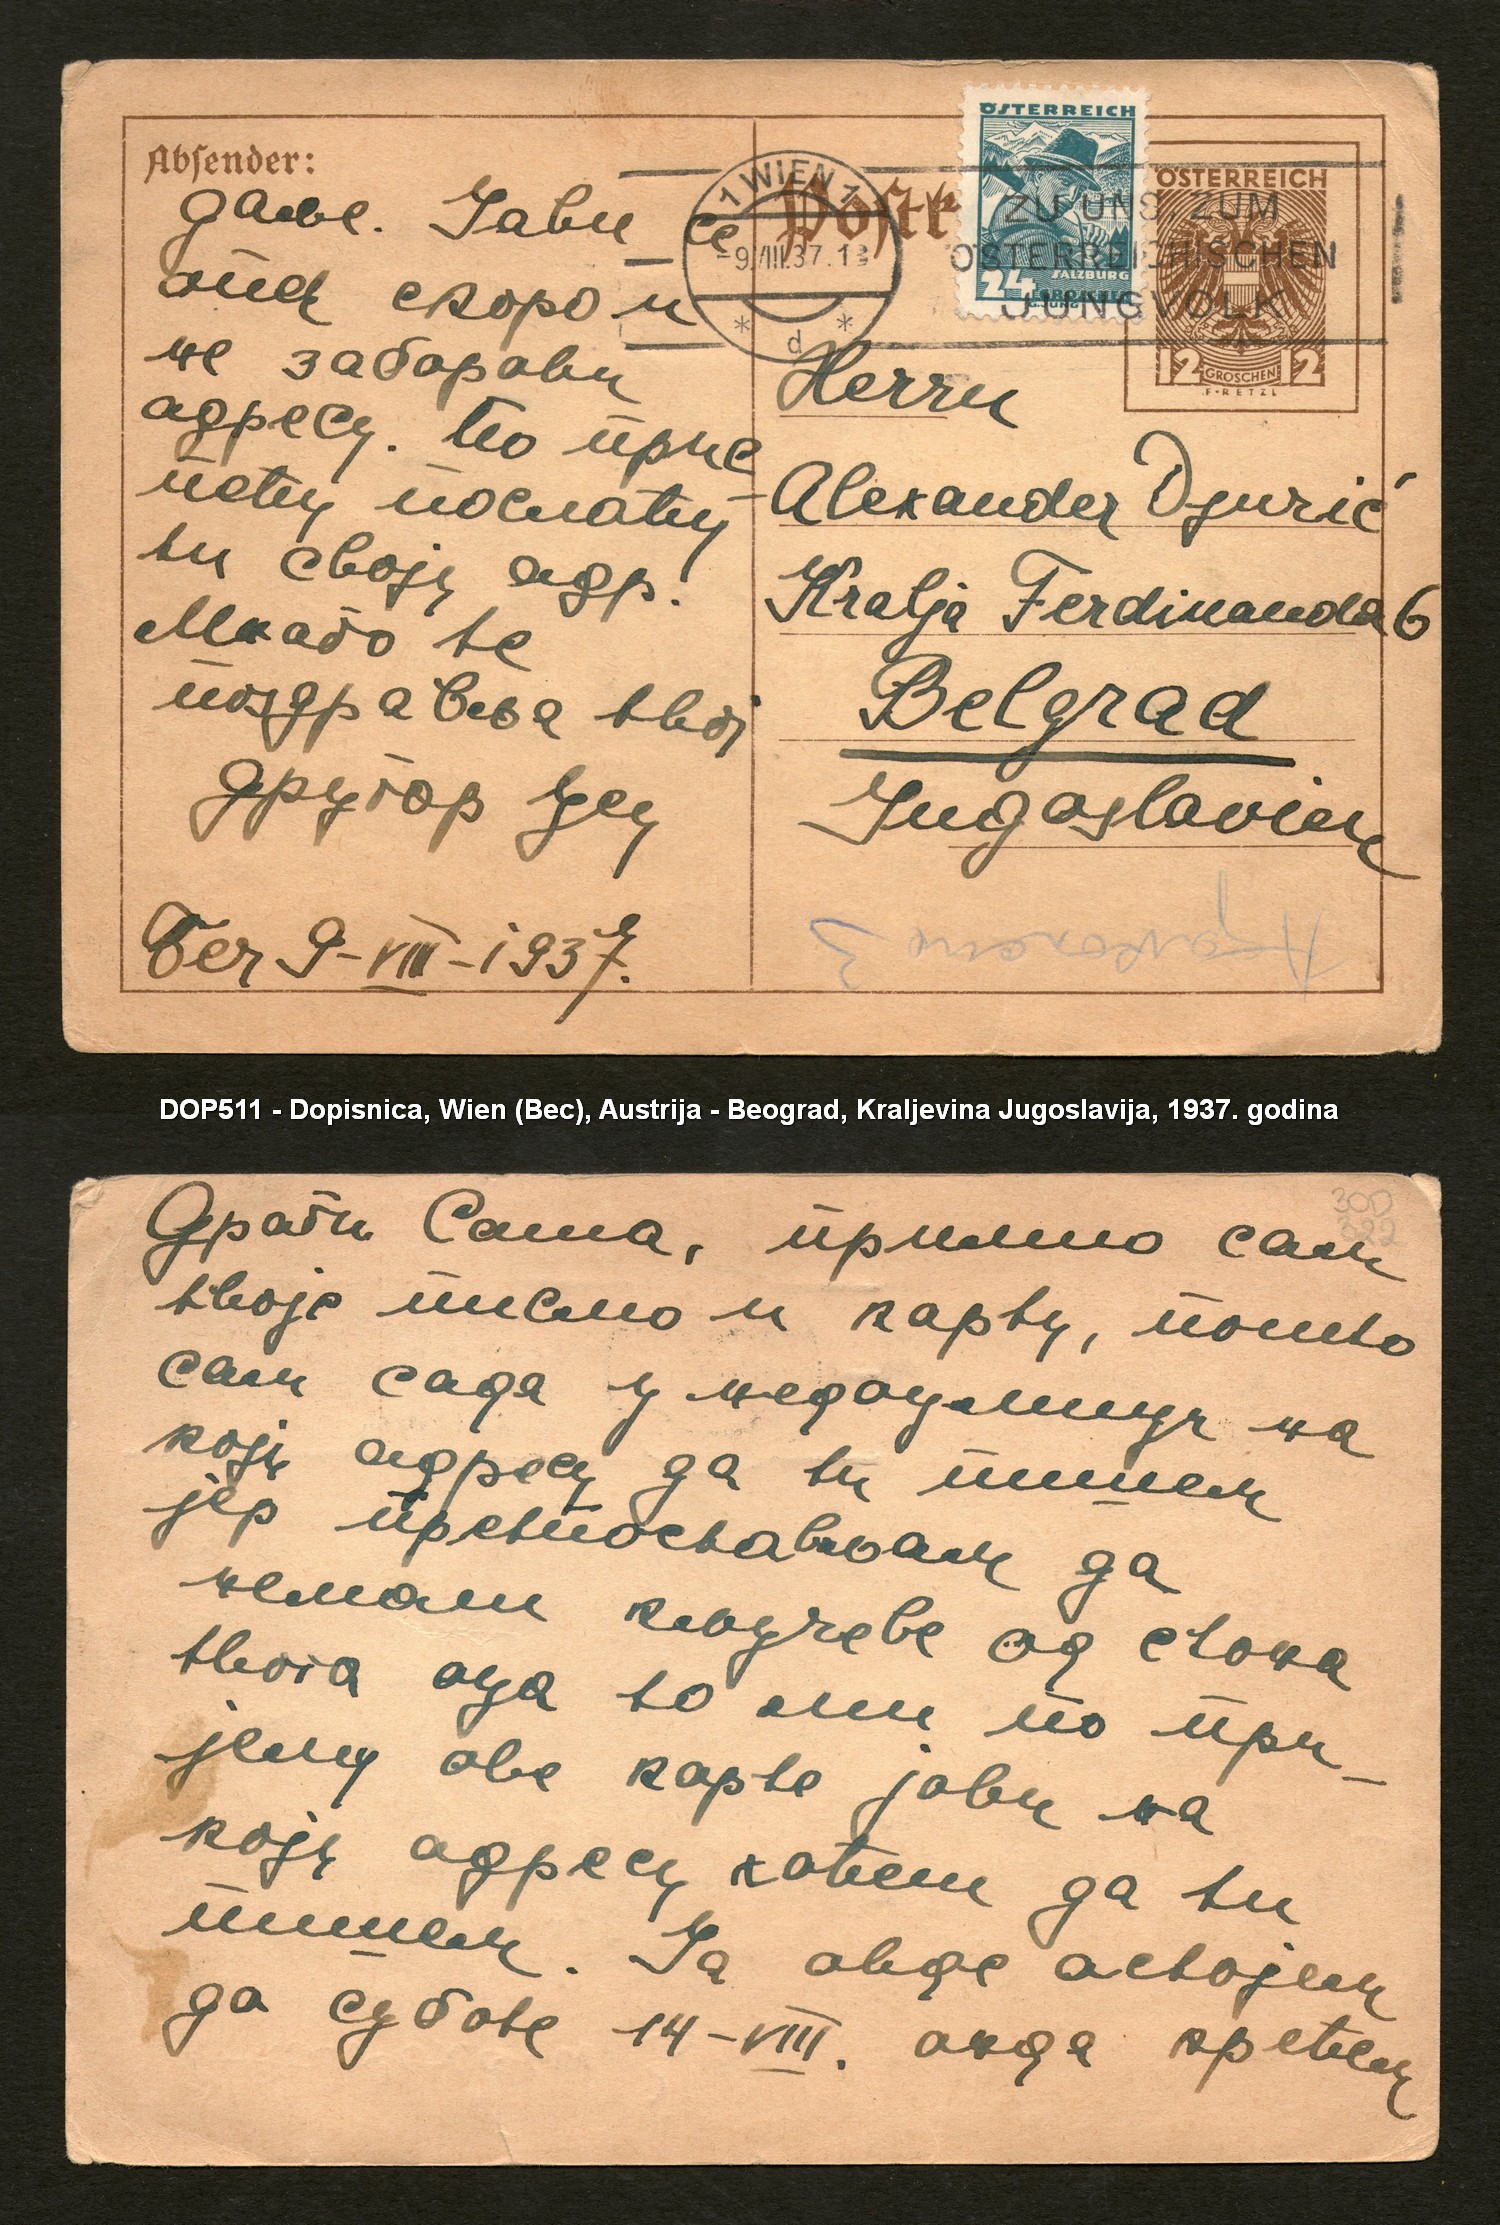 Absender:
даље. Јави се
опет скоро и
не заборави
адресу. По приспећу послаћу
ти своју адр.
Много те
поздравља твој
другар
Беч 9-VIII-1937.
1 WIEN 1
9.VIII.37.
* d *
ÖSTERREICH
SALZBURG
24 GROSCHEN
ZU UNS, ZUM
ÖSTERREICHISCHEN
JUNGVOLK
ÖSTERREICH
12 GROSCHEN 12
F·RETZL
Herrn
Alexander Djurić
Kralja Ferdinanda 6
Belgrad
Jugoslavien
DOP511 - Dopisnica, Wien (Bec), Austrija - Beograd, Kraljevina Jugoslavija, 1937. godina
Драги Саша, примио сам
твоје писмо и карту, пошто
сам сада у недоумици на
коју адресу да ти пишем
јер претпостављам да
немаш кључеве од стана
твога оца то ми по при-
јему ове карте јави на
коју адресу хоћеш да ти
пишем. Ја овде остојем
до суботе 14-VIII. онда крећем